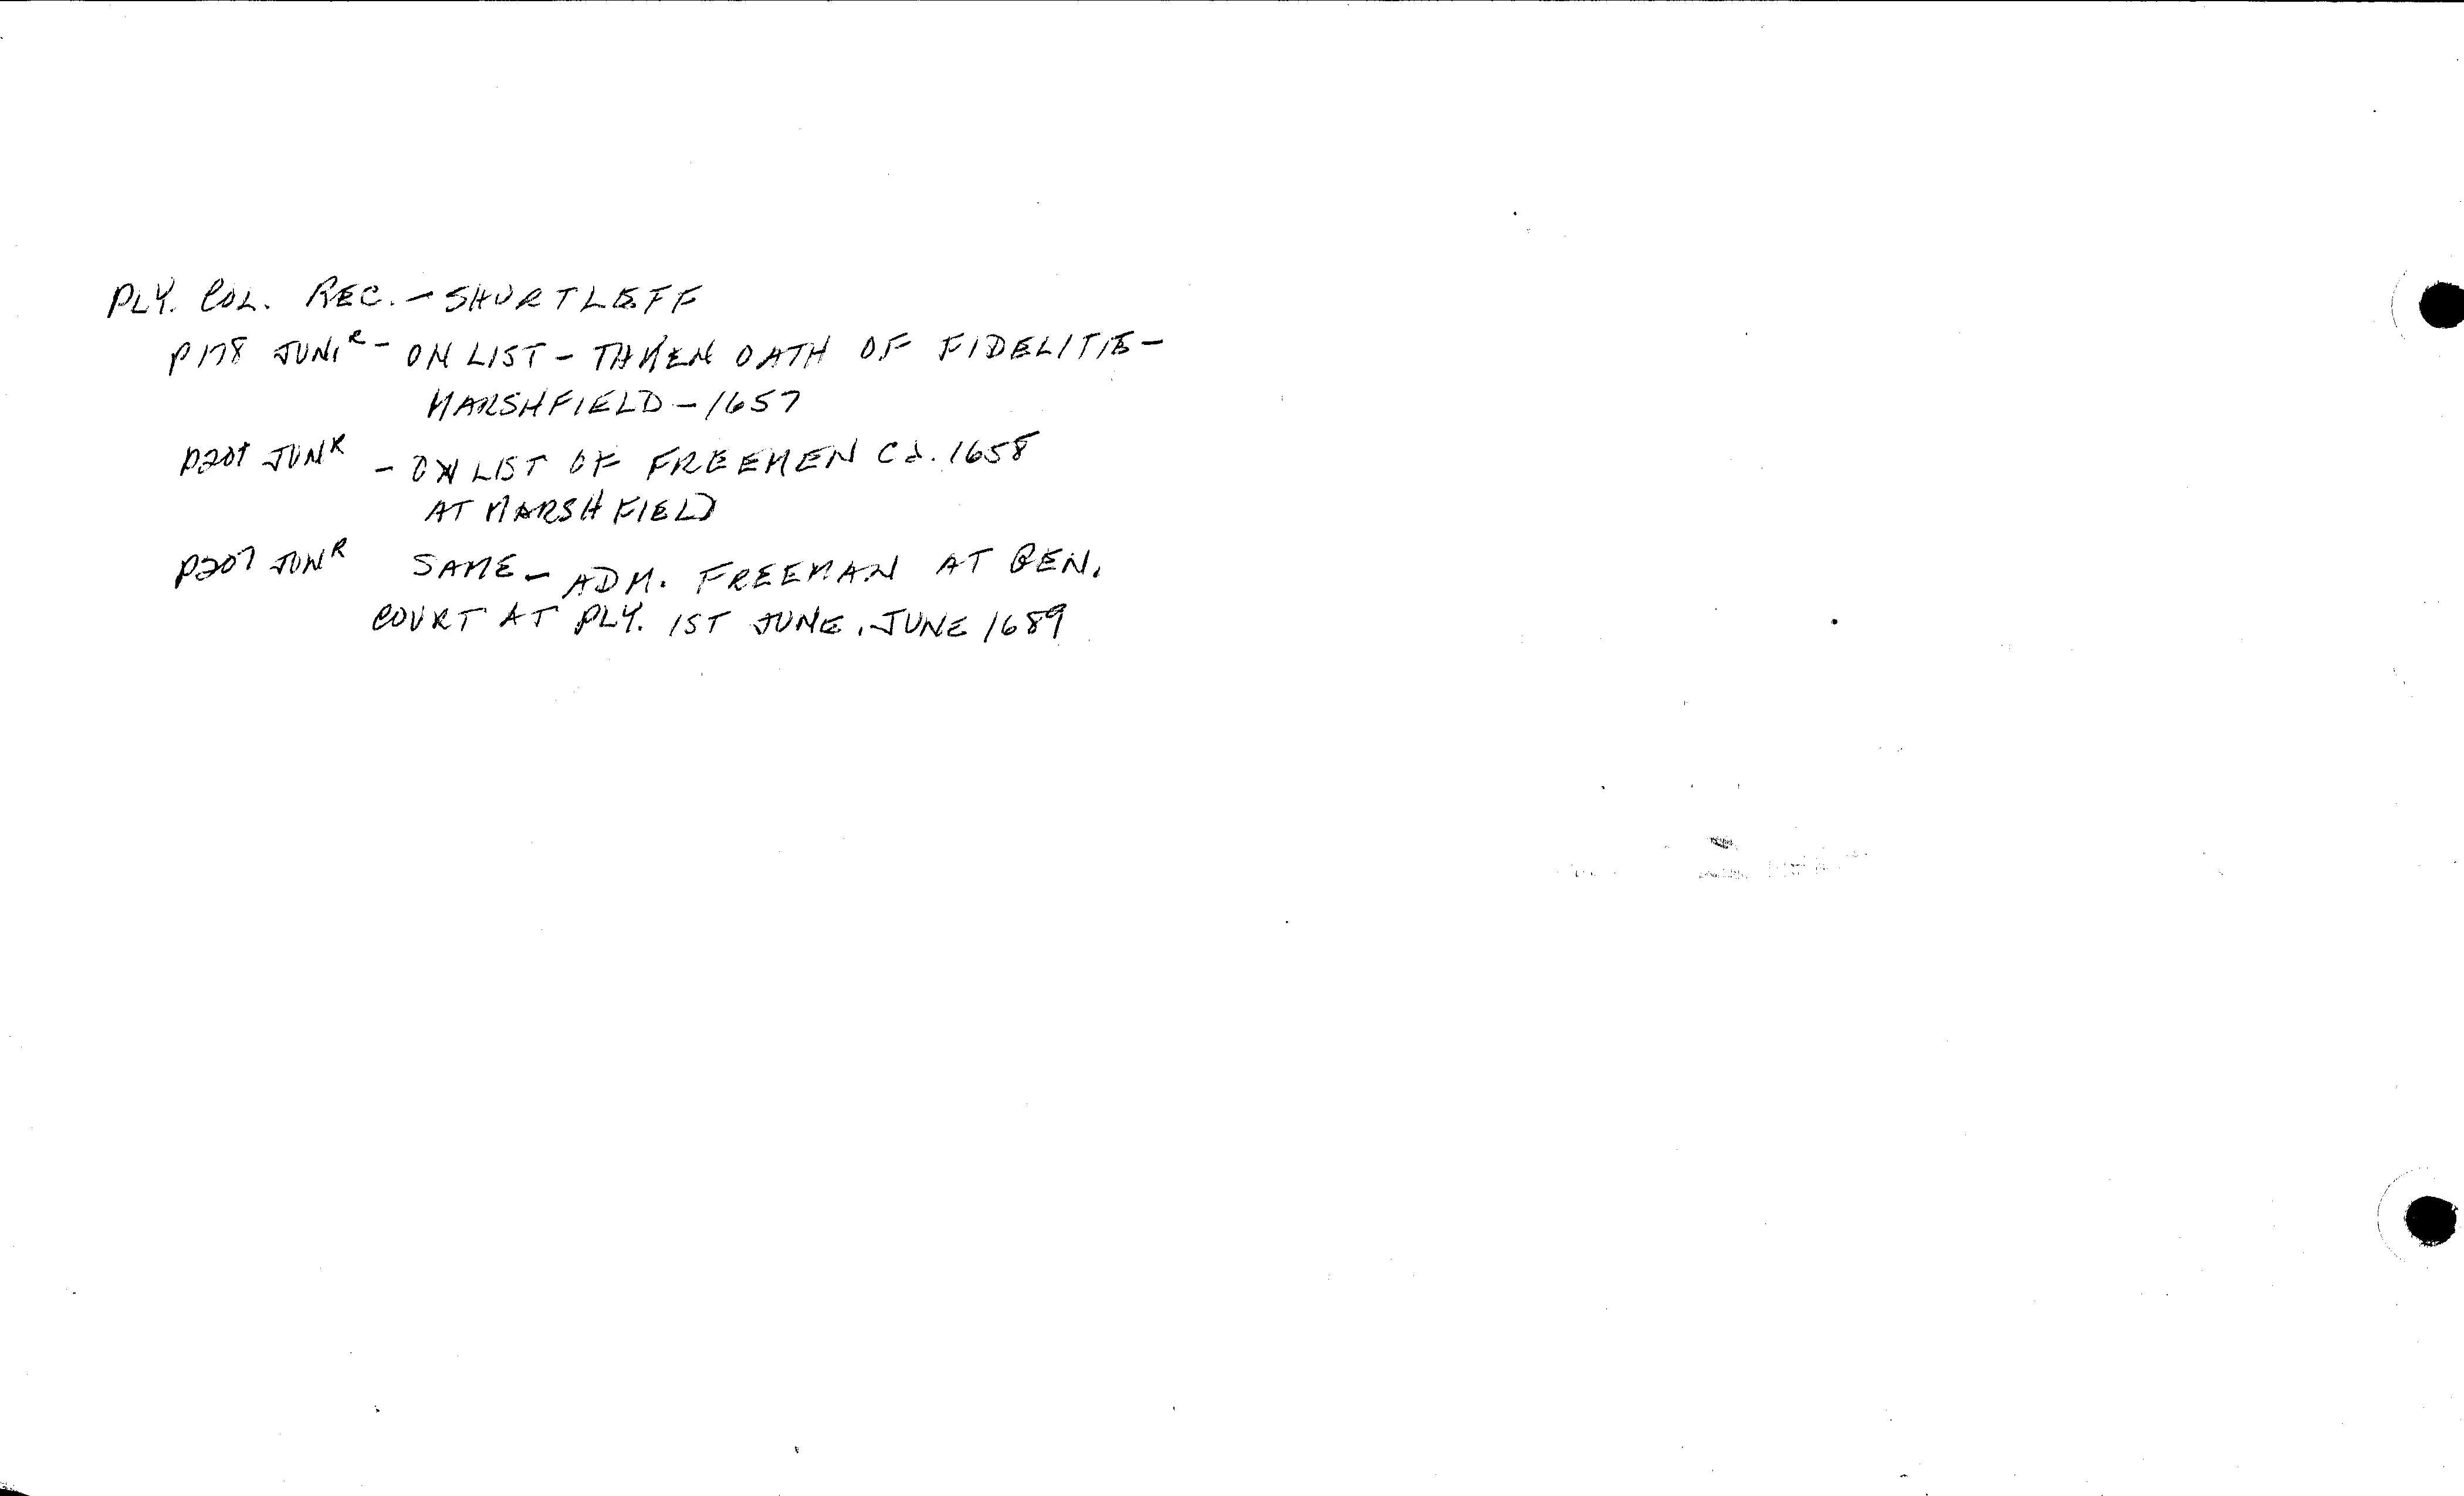 PLY. COL. REC. - SHURTLEFF
P178 JUNIR - ON LIST - TAKEN OATH OF FIDELITIE -
MARSHFIELD - 1657
JUNR - ON LIST OF FREEMEN Ca. 1658
AT MARSHFIELD
P207 JUNR SAME - ADM. FREEMAN AT GEN.
COURT AT PLY. 1ST JUNE, JUNE 1689